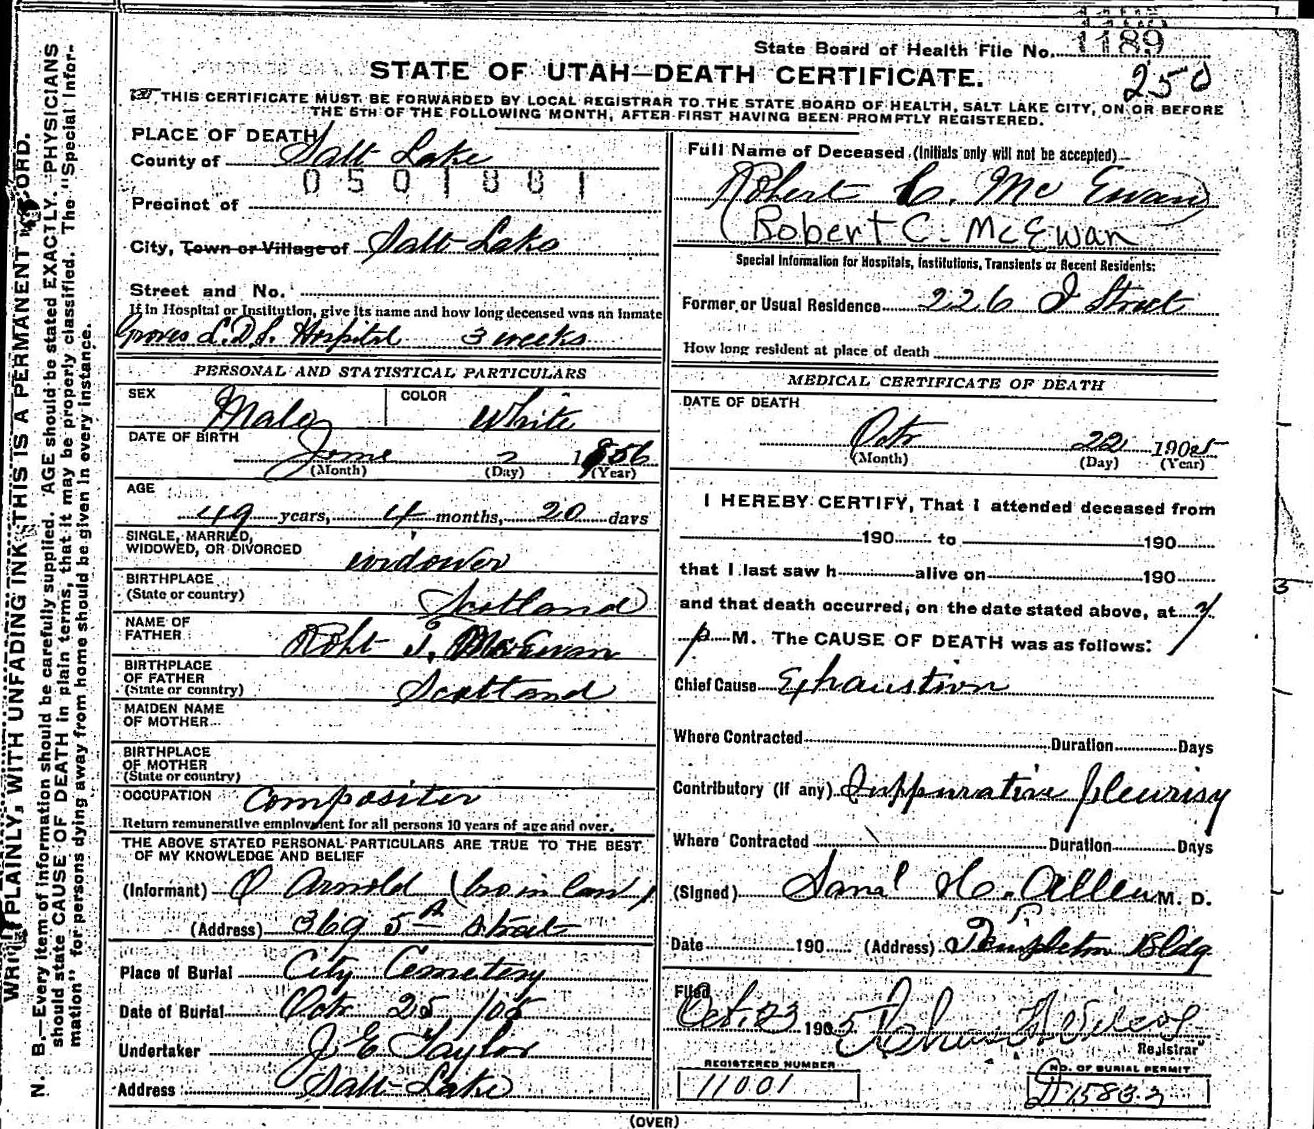 State Board of Health File No. 1189
250
STATE OF UTAH—DEATH CERTIFICATE.
THIS CERTIFICATE MUST BE FORWARDED BY LOCAL REGISTRAR TO THE STATE BOARD OF HEALTH, SALT LAKE CITY, ON OR BEFORE
THE 5TH OF THE FOLLOWING MONTH, AFTER FIRST HAVING BEEN PROMPTLY REGISTERED.
PLACE OF DEATH
County of Salt Lake
0501881
Precinct of
City, Town or Village of Salt Lake
Street and No.
If in Hospital or Institution, give its name and how long deceased was an Inmate
Groves L.D.S. Hospital 3 weeks
PERSONAL AND STATISTICAL PARTICULARS
SEX Male COLOR White
DATE OF BIRTH
June 2 1856
(Month) (Day) (Year)
AGE
49 years, 4 months, 20 days
SINGLE, MARRIED,
WIDOWED, OR DIVORCED widower
BIRTHPLACE
(State or country) Scotland
NAME OF
FATHER Robt T. McEwan
BIRTHPLACE
OF FATHER
(State or country) Scotland
MAIDEN NAME
OF MOTHER
BIRTHPLACE
OF MOTHER
(State or country)
OCCUPATION Compositer
Return remunerative employment for all persons 10 years of age and over.
THE ABOVE STATED PERSONAL PARTICULARS ARE TRUE TO THE BEST
OF MY KNOWLEDGE AND BELIEF
(Informant) O Arnold (bro in law)
(Address) 369 5th Street
Place of Burial City Cemetery
Date of Burial Oct 25 /05
Undertaker J E Taylor
Address Salt Lake
Full Name of Deceased (Initials only will not be accepted)
Robert C. McEwan
(Robert C. McEwan
Special Information for Hospitals, Institutions, Transients or Recent Residents:
Former or Usual Residence 226 J Street
How long resident at place of death
MEDICAL CERTIFICATE OF DEATH
DATE OF DEATH
Oct 22 1905
(Month) (Day) (Year)
I HEREBY CERTIFY, That I attended deceased from
190 to 190
that I last saw h alive on 190
and that death occurred, on the date stated above, at 7
p M. The CAUSE OF DEATH was as follows:
Chief Cause Exhaustion
Where Contracted Duration Days
Contributory (if any) Suppurative pleurisy
Where Contracted Duration Days
(Signed) Saml H. Allen M. D.
Date 190 (Address) Templeton Bldg
Filed
Oct. 23 1905
Registrar
REGISTERED NUMBER
11001
NO. OF BURIAL PERMIT
D15833
(OVER)
N. B.—Every item of information should be carefully supplied. AGE should be stated EXACTLY. PHYSICIANS
should state CAUSE OF DEATH in plain terms, that it may be properly classified. The "Special Infor-
mation" for persons dying away from home should be given in every instance.
WRITE PLAINLY, WITH UNFADING INK—THIS IS A PERMANENT RECORD.